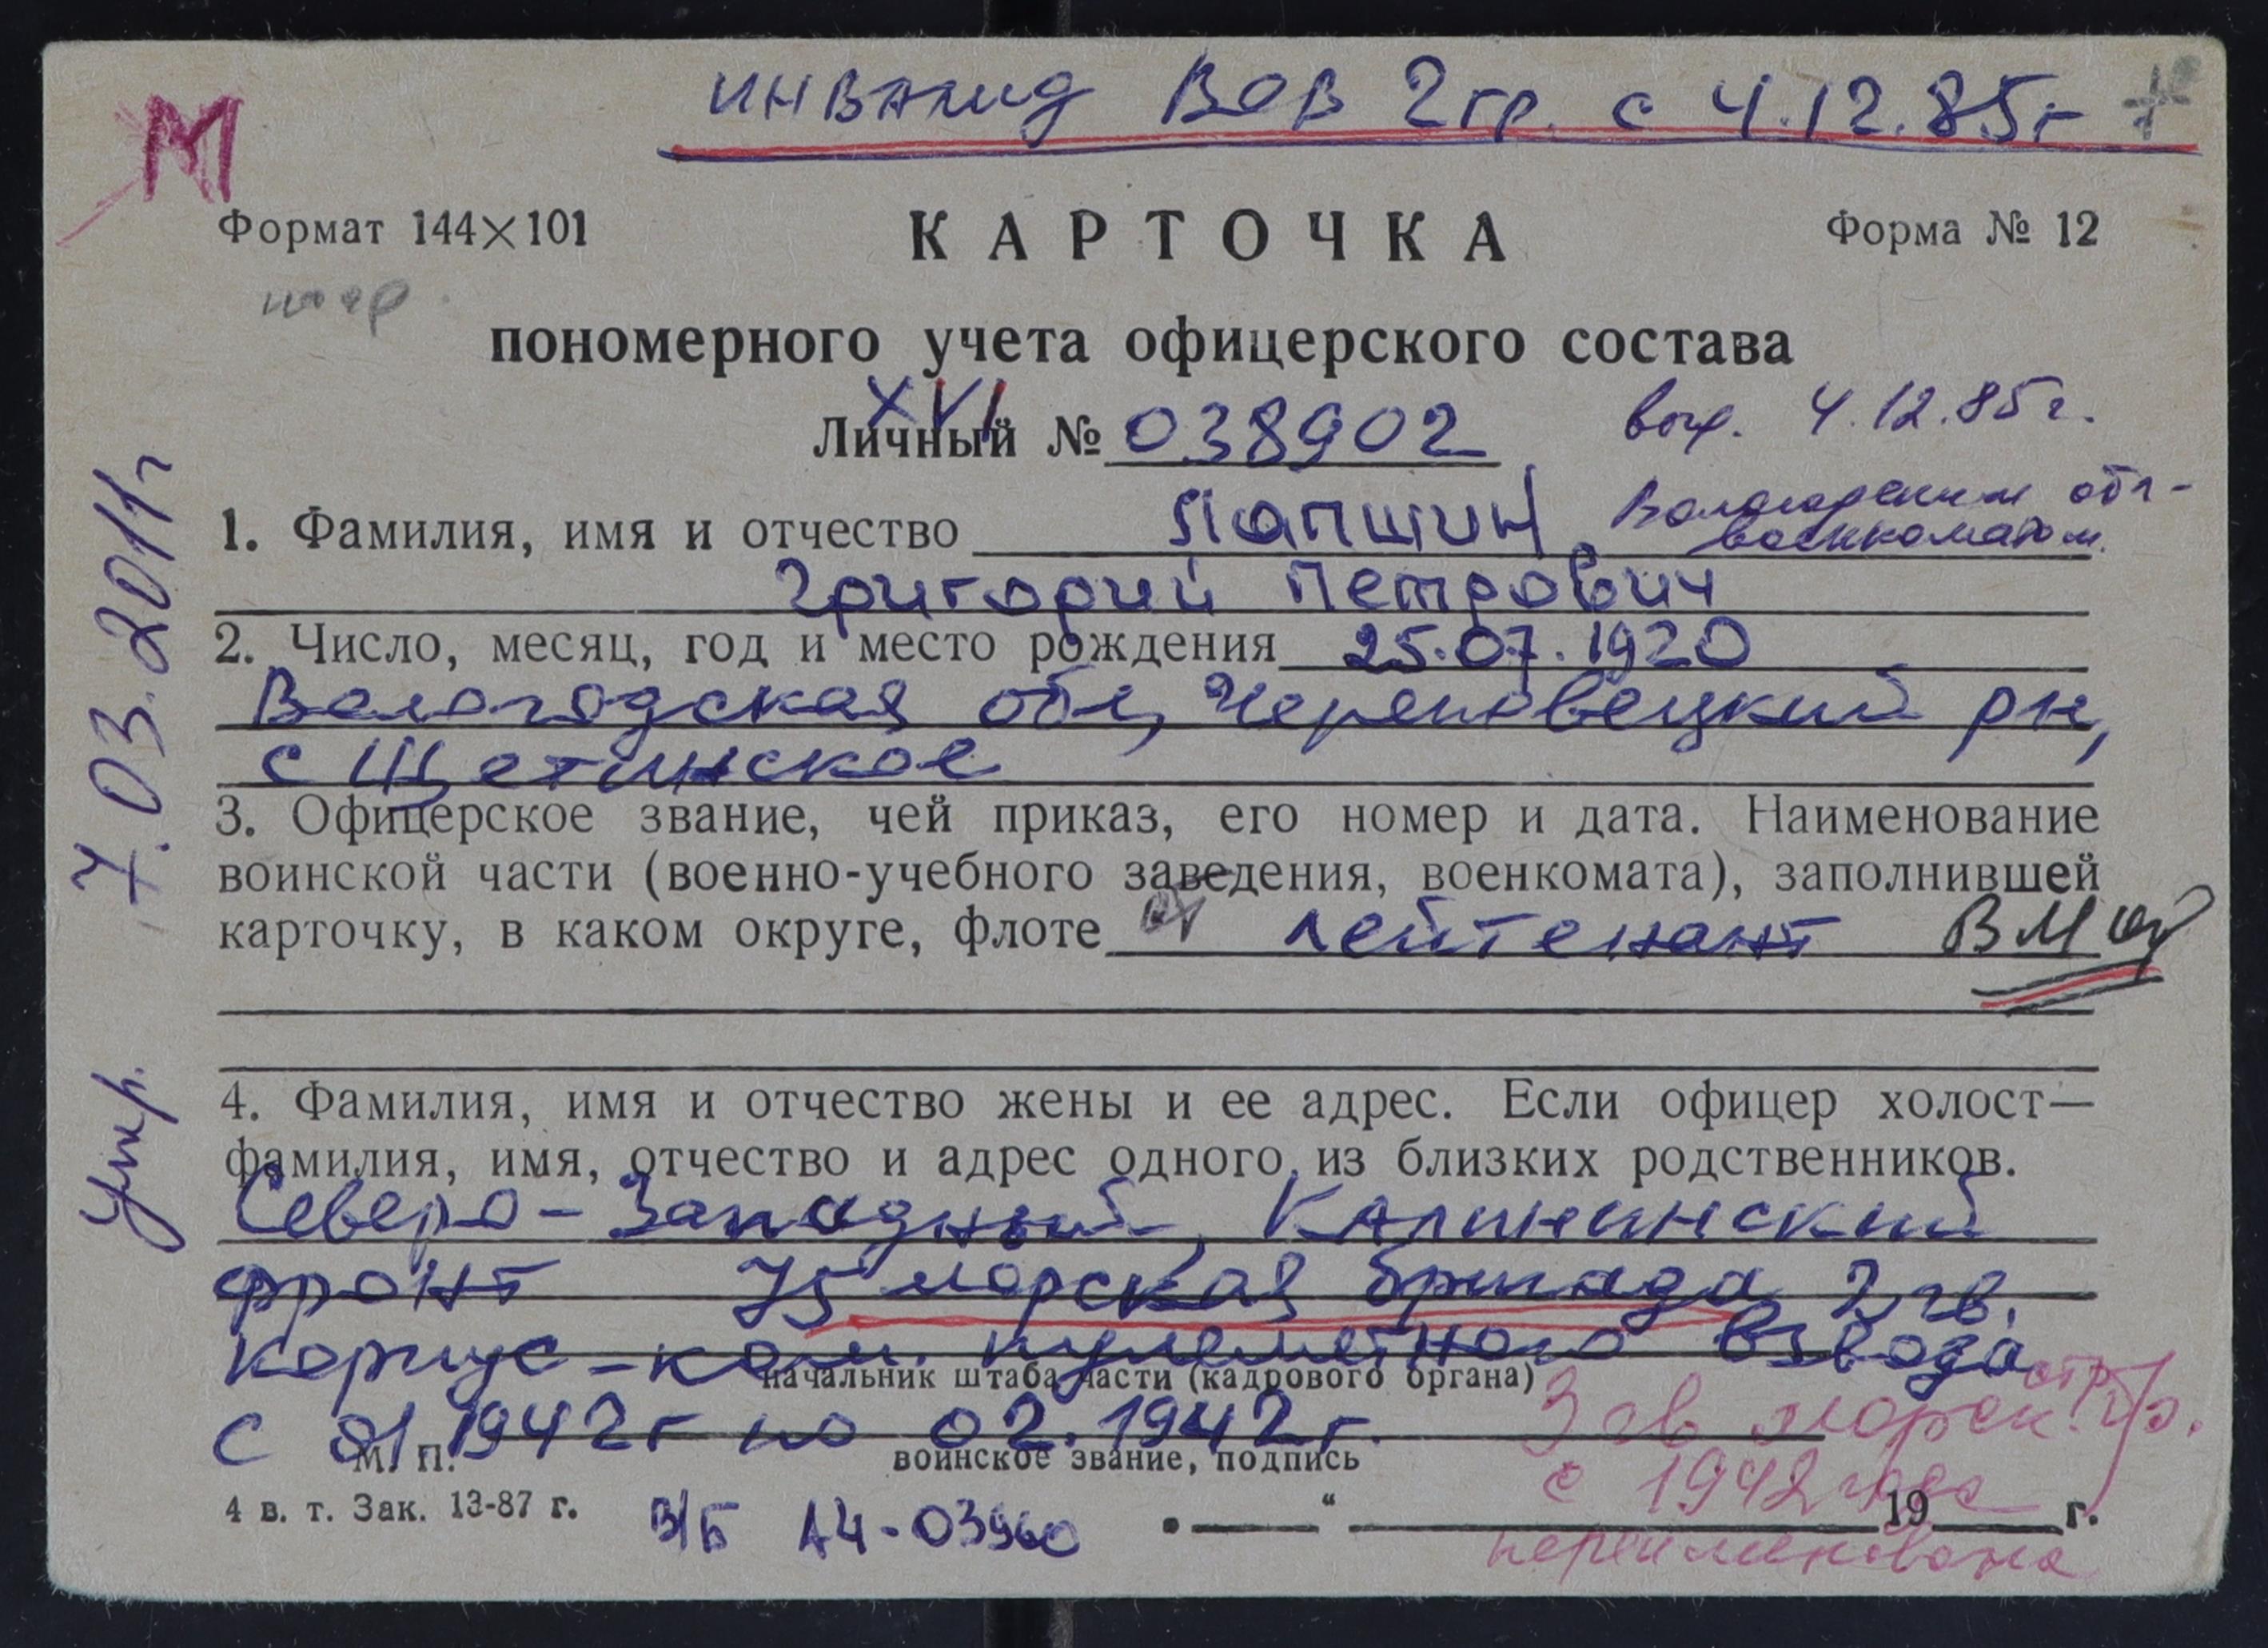 инвалид ВОВ 2 гр. с 4.12.85 г +
М
Формат 144×101
КАРТОЧКА
Форма № 12
пономерного учета офицерского состава
XVI
Личный № 038902
4.12.85 г.
1. Фамилия, имя и отчество Лапшин
обл-
военкоматом.
Григорий Петрович
2. Число, месяц, год и место рождения 25.07.1920
Вологодская обл, Череповецкий рн,
с Щетинское
3. Офицерское звание, чей приказ, его номер и дата. Наименование
воинской части (военно-учебного заведения, военкомата), заполнившей
карточку, в каком округе, флоте лейтенант
4. Фамилия, имя и отчество жены и ее адрес. Если офицер холост—
фамилия, имя, отчество и адрес одного из близких родственников.
Северо-Западный, Калининский
фронт 75 морская бригада 2 гв.
корпус - ком. пулеметного взвода
начальник штаба части (кадрового органа)
с 01 1942 г по 02.1942 г.
3 гв морск. стр. бр.
М. П.
воинское звание, подпись
с 1942 года
4 в. т. Зак. 13-87 г.
В/Б А4-03960
“ 19 г.
переименована
Умер. 7.03.2011 г